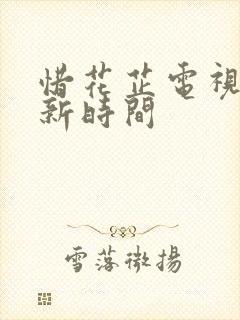 惜花芷電視
新時間
雪落微揚